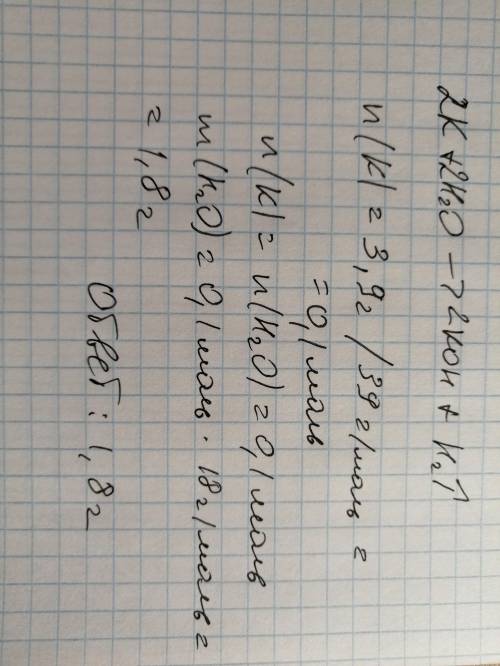 2K + 2H₂O → 2KOH + H₂↑
n(K) = 3,9г / 39 г/моль =
= 0,1 моль
n(K) = n(H₂O) = 0,1 моль
m(H₂O) = 0,1 моль · 18 г/моль =
= 1,8 г
Ответ: 1,8 г